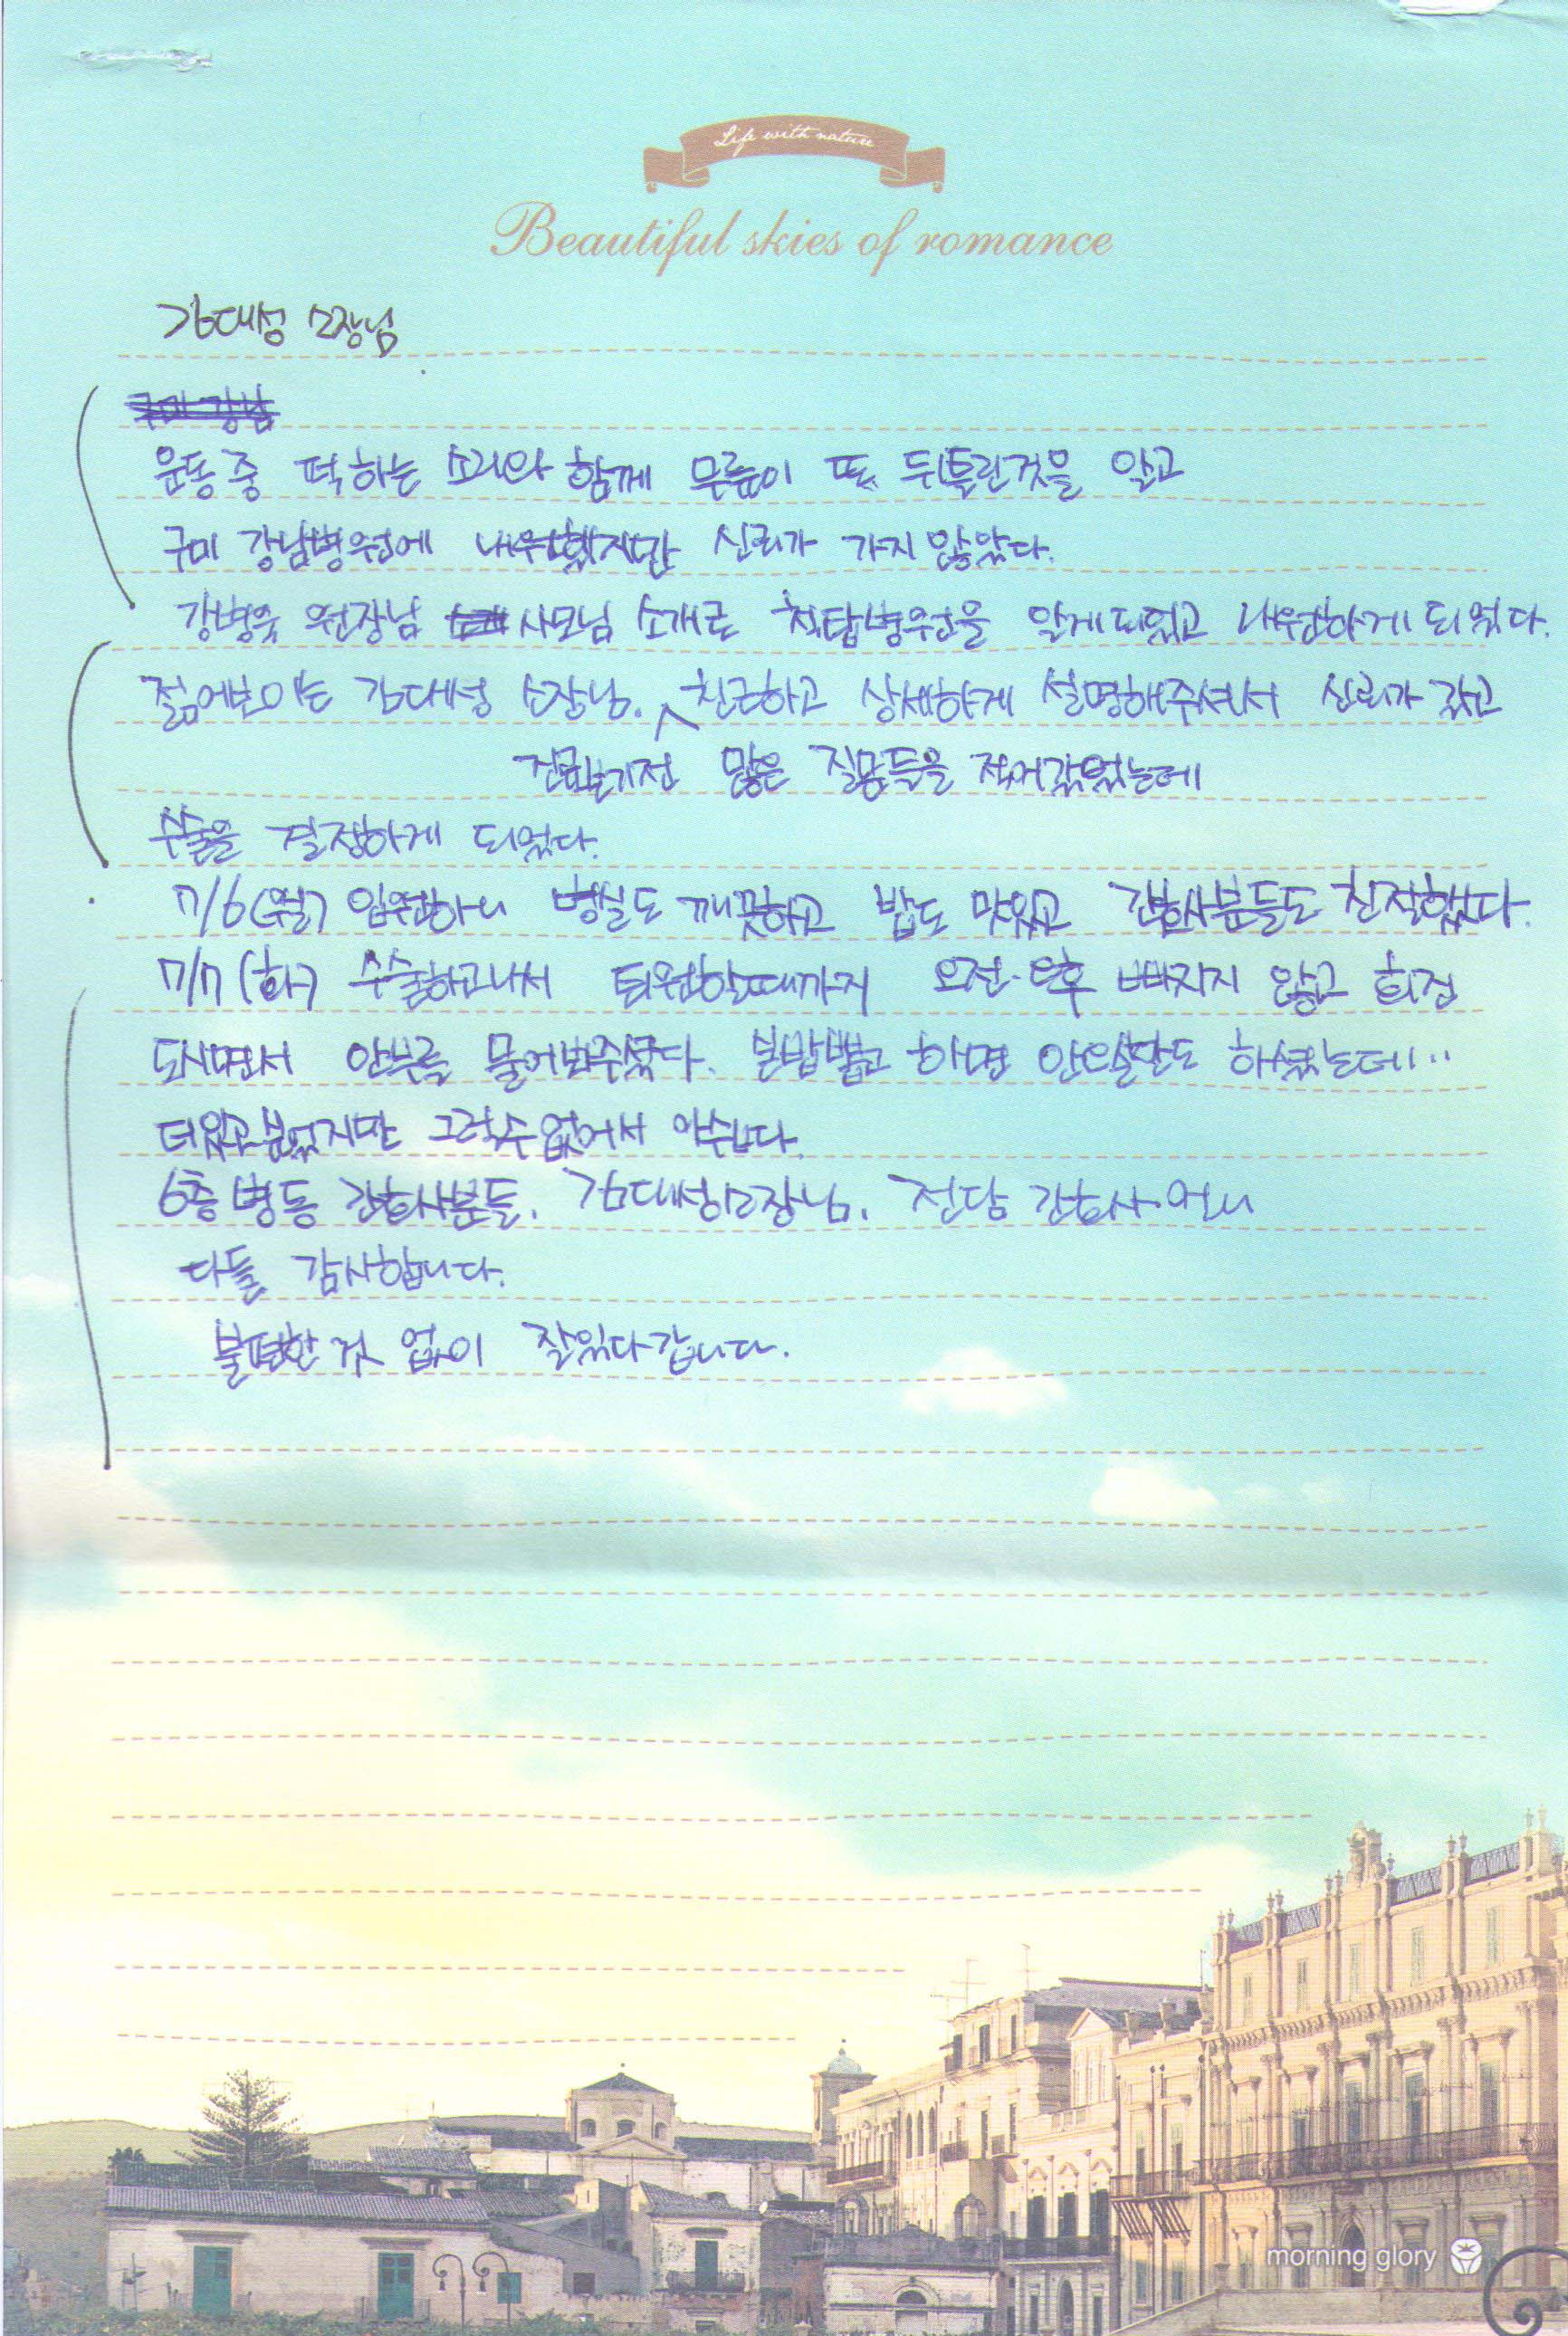 Life with nature
Beautiful skies of romance
김대성 소장님
구미 강남
운동 중 떡 하는 소리와 함께 무릎이 또 뒤틀린것을 알고
구미 강남병원에 내원했지만 신뢰가 가지 않았다.
강병욱 원장님 사모님 소개로 척탑병원을 알게되었고 내원하게 되었다.
젊어보이는 김대성 소장님. 친근하고 상세하게 설명해주셔서 신뢰가 갔고
진료보기전 많은 질문들을 적어갔었는데
수술을 결정하게 되었다.
7/6(월) 입원하니 병실도 깨끗하고 밥도 맛있고 간호사분들도 친절했다.
7/7(화) 수술하고나서 퇴원할때까지 오전·오후 빠지지 않고 회진
도시면서 안부를 물어봐주셨다. 실밥뽑고 하면 안되냐도 하셨는데..
더있고싶었지만 그럴수없어서 아쉽다.
6층 병동 간호사분들, 김대성소장님, 전담 간호사 언니
다들 감사합니다.
불편한 것 없이 잘있다갑니다.
morning glory